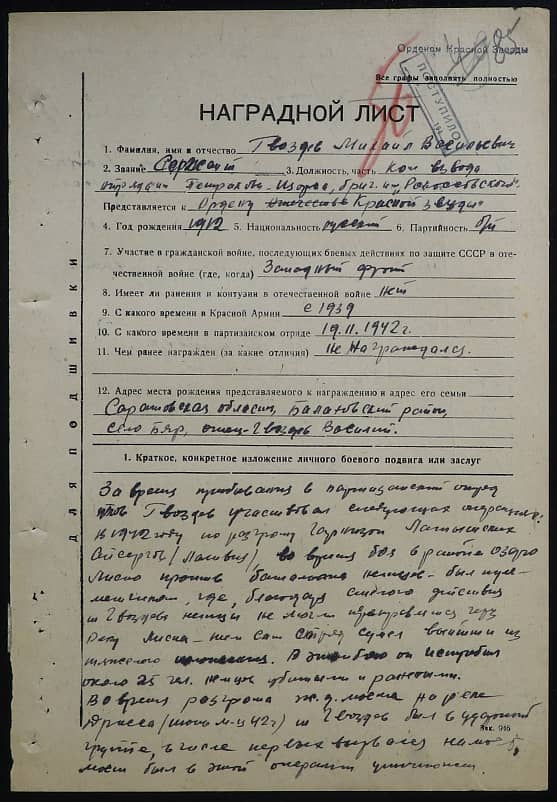 Орденом Красной Звезды
Все графы заполнять полностью
ПОСТУПИЛО
НАГРАДНОЙ ЛИСТ
1. Фамилия, имя и отчество Гвоздев Михаил Васильевич
2. Звание Сержант 3. Должность, часть Ком взвода
отряда бриг. им. Рокоссовского
Представляется к Ордену Красной звезды
4. Год рождения 1912 5. Национальность русский 6. Партийность б/п
7. Участие в гражданской войне, последующих боевых действиях по защите СССР в оте-
чественной войне (где, когда) Западный фронт
8. Имеет ли ранения и контузии в отечественной войне нет
9. С какого времени в Красной Армии с 1939
10. С какого времени в партизанском отряде 19.11.1942 г.
11. Чем ранее награжден (за какие отличия) не награждался.
12. Адрес места рождения представляемого к награждению и адрес его семьи
Саратовская область, район,
село отец - Гвоздев Василий.
ДЛЯ ПОДШИВКИ
1. Краткое, конкретное изложение личного боевого подвига или заслуг
За время пребывания в партизанском отряде
Гвоздев участвовал следующих операциях:
в 1942 году по разгрому гарнизона Латышских
Айсаргов (Латвия) во время боя в районе озера
Лисно против батальона немцев - был пуле-
метчиком, где, благодаря действия
Гвоздева немцы не могли переправится через
реку отряд сумел выйти из
тяжелого положения. В этом бою он истребил
около 25 чел. немцев убитыми и ранеными.
Во время разгрома ж.д. моста на реке
Дрисса м-ц 42 г) Гвоздев был в ударной
Зак. 916
группе, в числе первых ворвался на мост,
мост был в этой операции уничтожен.